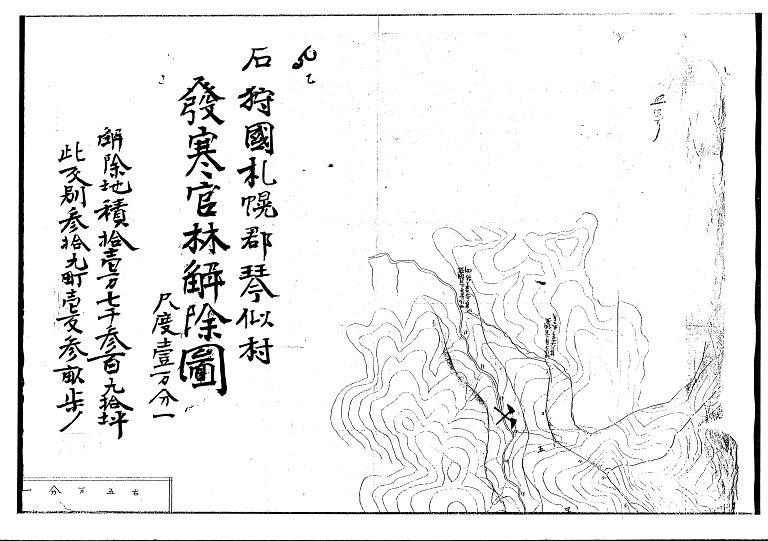 石狩國札幌郡琴似村
發寒官林解除圖
尺度壹万分一
解除地積拾壹万七千参百九拾坪
此反別参拾九町壹反参畝歩
右五万分一